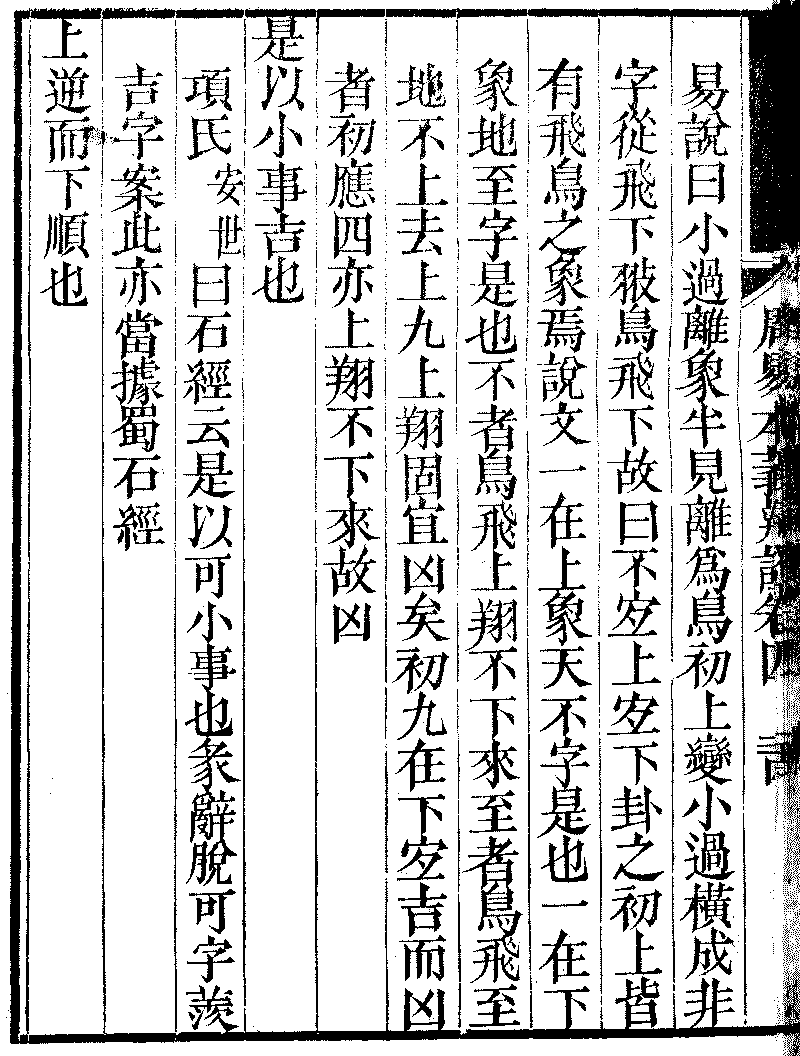 周易本義辨證卷四
易說曰小過離象半見離爲鳥初上變小過橫成非
字從飛下翄鳥飛下故曰不宐上宐下卦之初上皆
有飛鳥之象焉說文一在上象天不字是也一在下
象地至字是也不者鳥飛上翔不下來至者鳥飛至
地不上去上九上翔固宜凶矣初九在下宐吉而凶
者初應四亦上翔不下來故凶
是以小事吉也
項氏安世曰石經云是以可小事也彖辭脫可字羨
吉字案此亦當據蜀石經
上逆而下順也